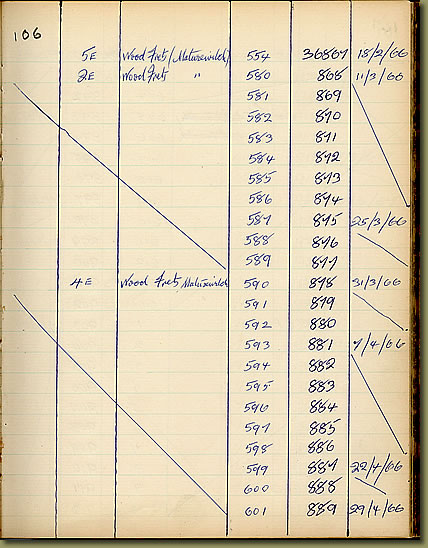 106
5E Wood Frets (Matusewitch) 554 36867 18/2/66
2E Wood Frets " 580 868 11/3/66
581 869
582 870
583 871
584 872
585 873
586 874
587 875 25/3/66
588 876
589 877
4E Wood Frets, Matusewitch 590 878 31/3/66
591 879
592 880
593 881 7/4/66
594 882
595 883
596 884
597 885
598 886
599 887 22/4/66
600 888
601 889 29/4/66